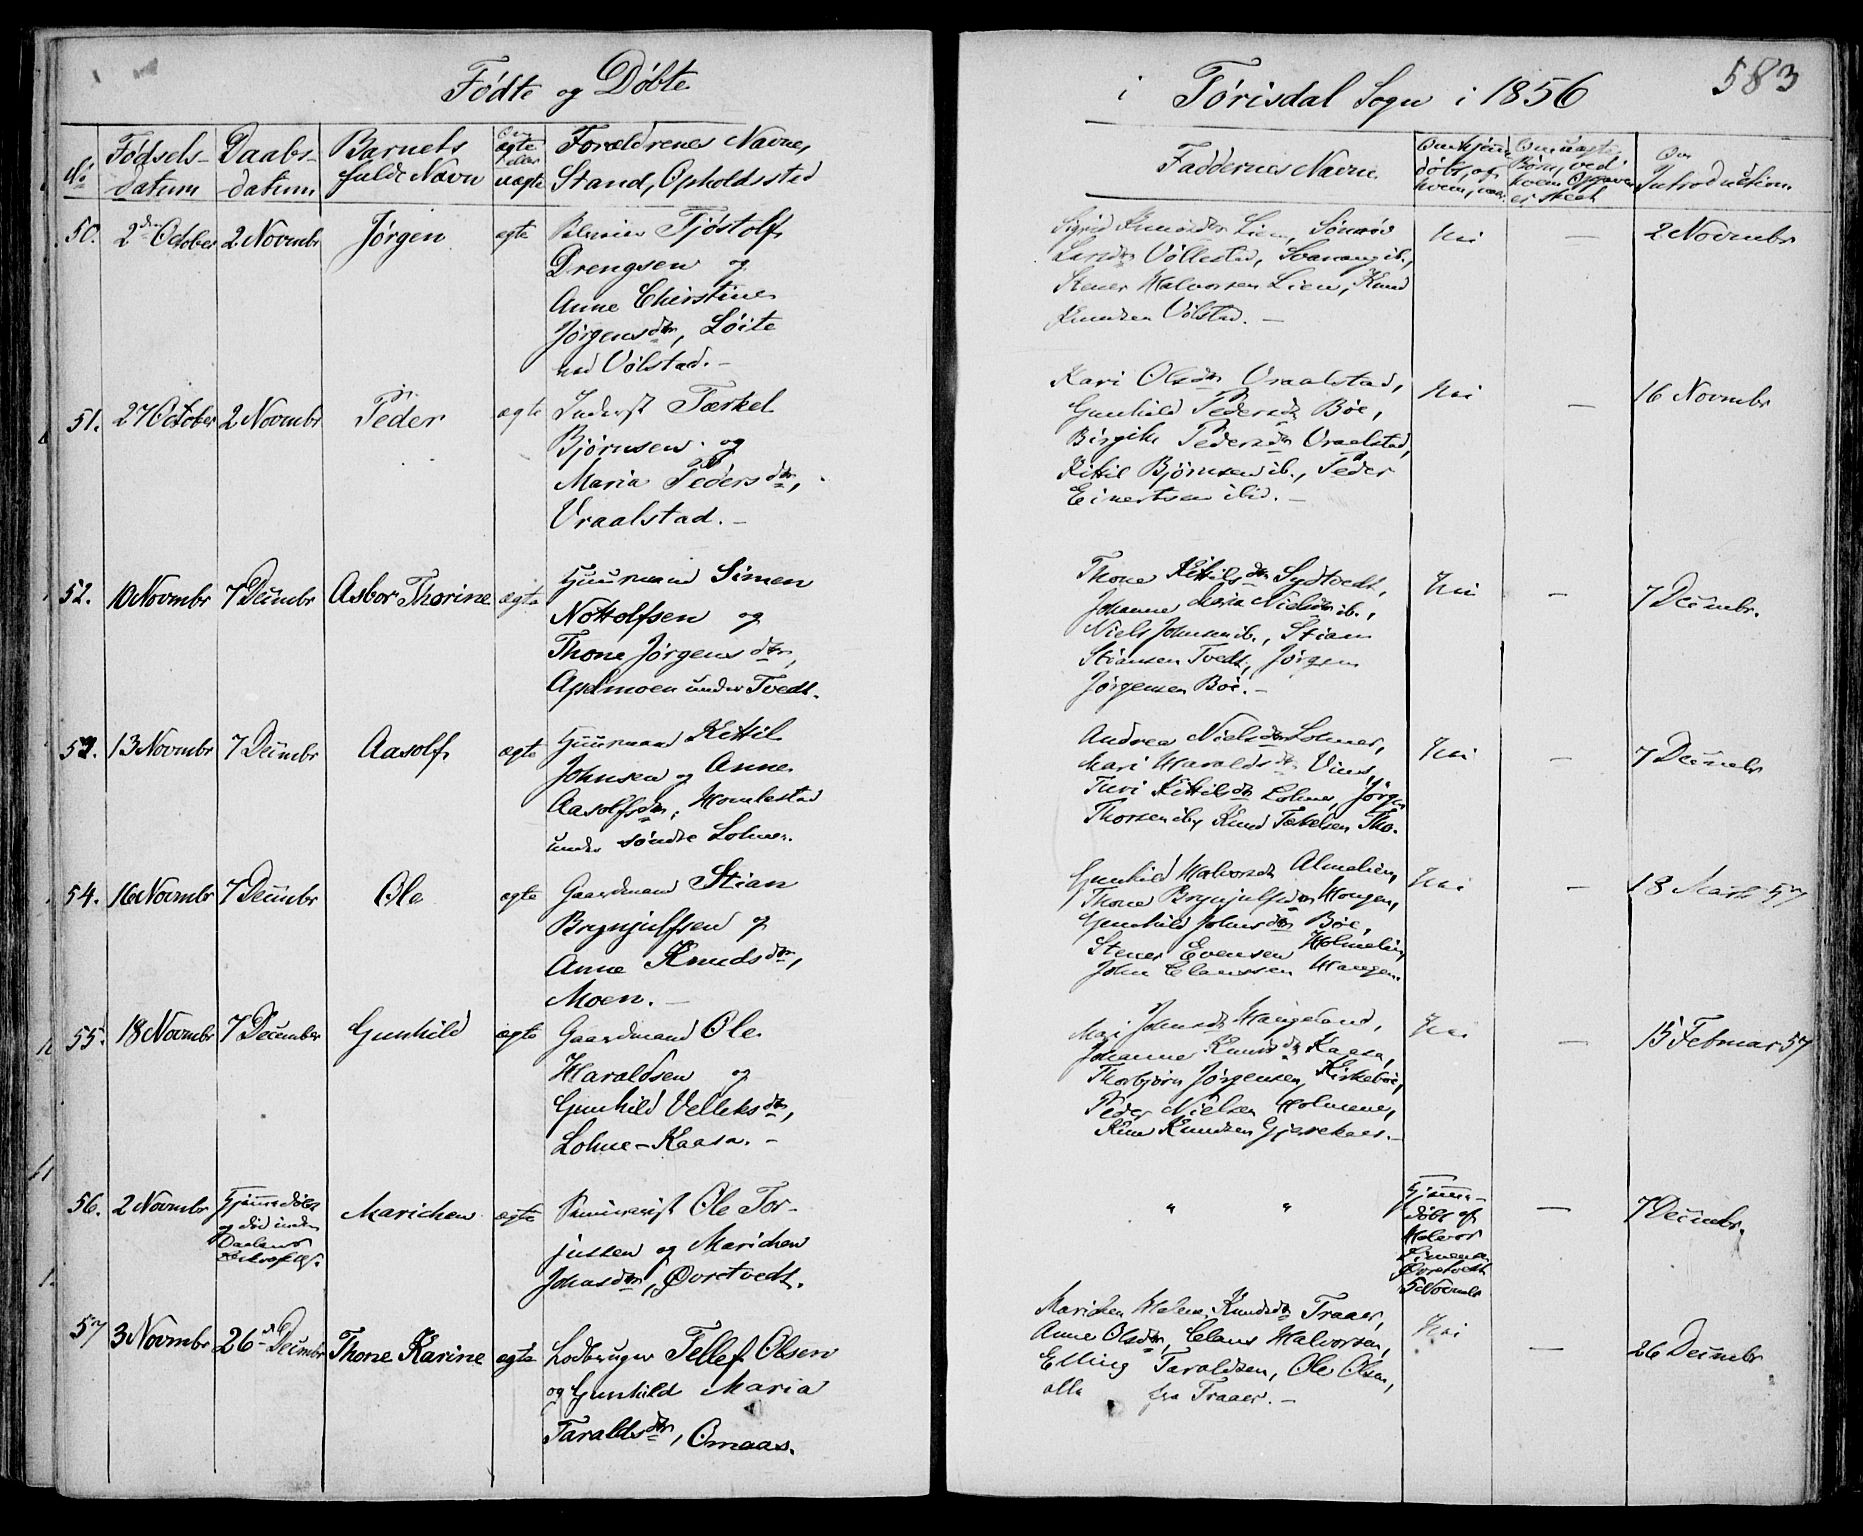 Fødte og Døbte
i Tørisdal Sogn i 1856
583
No
Fødsels-
datum
Daabs-
datum
Barnets
fulde Navn
Om
ægte
eller
uægte
Forældrenes Navne,
Stand, Opholdssted
Faddernes Navne
Om hjemme
døbt, af
hvem, naar
Om uægte
Børn, ved
hvem Opgaven
er skeet
Om
Introduction
50.
2den October
2 Novembr
Jørgen
ægte
Tjøstolf
Drengsen og
Anne Christine
Jørgensdtr, Løite
ved Vølstad. -
Sigrid Knudsdtr Lien,
Larsdtr Vøllestad, ib.,
Stener Halvorsen Lien, Knud
Knudsen Vølstad. -
Nei
—
2 Novembr
51.
27 October
2 Novembr
Peder
ægte
Inderst Tærkel
Bjørnsen og
Maria Pedersdtr,
Vraalstad. -
Kari Olsdtr Vraalstad,
Gunhild Pedersdtr Bøe,
Birgithe Pedersdtr Vraalstad,
Kittil Bjørnsen ib., Peder
Einertsen ibid. -
Nei
—
16 Novembr
52.
10 Novembr
7 Decembr
Asbor Thorine
ægte
Huusmand Simen
Nottolfsen og
Thone Jørgensdtr,
under Tvedt.
Thone Kittilsdtr Sydtvedt,
Johanne Maria Nielsdtr ib.,
Niels Johnsen ib., Stian
Stiansen Tvedt, Jørgen
Jørgensen Bøe. -
Nei
—
7 Decembr.
53.
13 Novembr
7 Decembr
Aasolf
ægte
Huusmand Kittil
Johnsen og Anne
Aasolfsdtr, Homlestad
under søndre Lohne.
Andrea Nielsdtr Lohne,
Mari Haraldsdtr Vines,
Turi Kittilsdtr Lohne, Jørgen
Thorsen ib, Knud Tærkelsen Tho.
Nei
—
7 Decembr
54.
16 Novembr
7 Decembr
Ole
ægte
Gaardmand Stian
Brynjulfsen og
Anne Knudsdtr,
Moen. -
Gunhild Halvorsdtr
Thone Brynjulfsdtr Haugen,
Gunhild Johnsdtr Bøe,
Stener Evensen Holmelien,
John Claussen Haugen.
Nei
—
18 Marts 57
55.
18 Novembr
7 December
Gunhild
ægte
Gaardmand Ole
Haraldsen og
Gunhild Velleksdtr,
Lohne-Kaasa. -
Mari Johnsdtr Haugeland,
Johanne Knudsdtr Kaasa,
Thorbjørn Jørgensen Kirkebøe,
Peder Nielsen Holmene,
Knud Knudsen
Nei
—
15 Februar 57
56.
2 Novembr
Hjemmedøbt
og død inden
Daabens
Marichen
ægte
Ole Tor-
jussen og Marichen
Johnsdtr, Øvretvedt.
" "
Hjemme-
døbt af
Halvor
Simensen
Øvretvedt
5 Novembr
—
7 Decembr.
57
3 Novembr
26de Decembr
Thone Karine
ægte
Lodbruger Tellef Olsen
og Gunhild Maria
Taraldsdtr, Omaas.
Marichen Helene Knudsdtr Traaer,
Anne Olsdtr, Claus Halvorsen,
Elling Taraldsen, Ole Olsen,
alle fra Traaer. -
Nei
—
26 Decembr